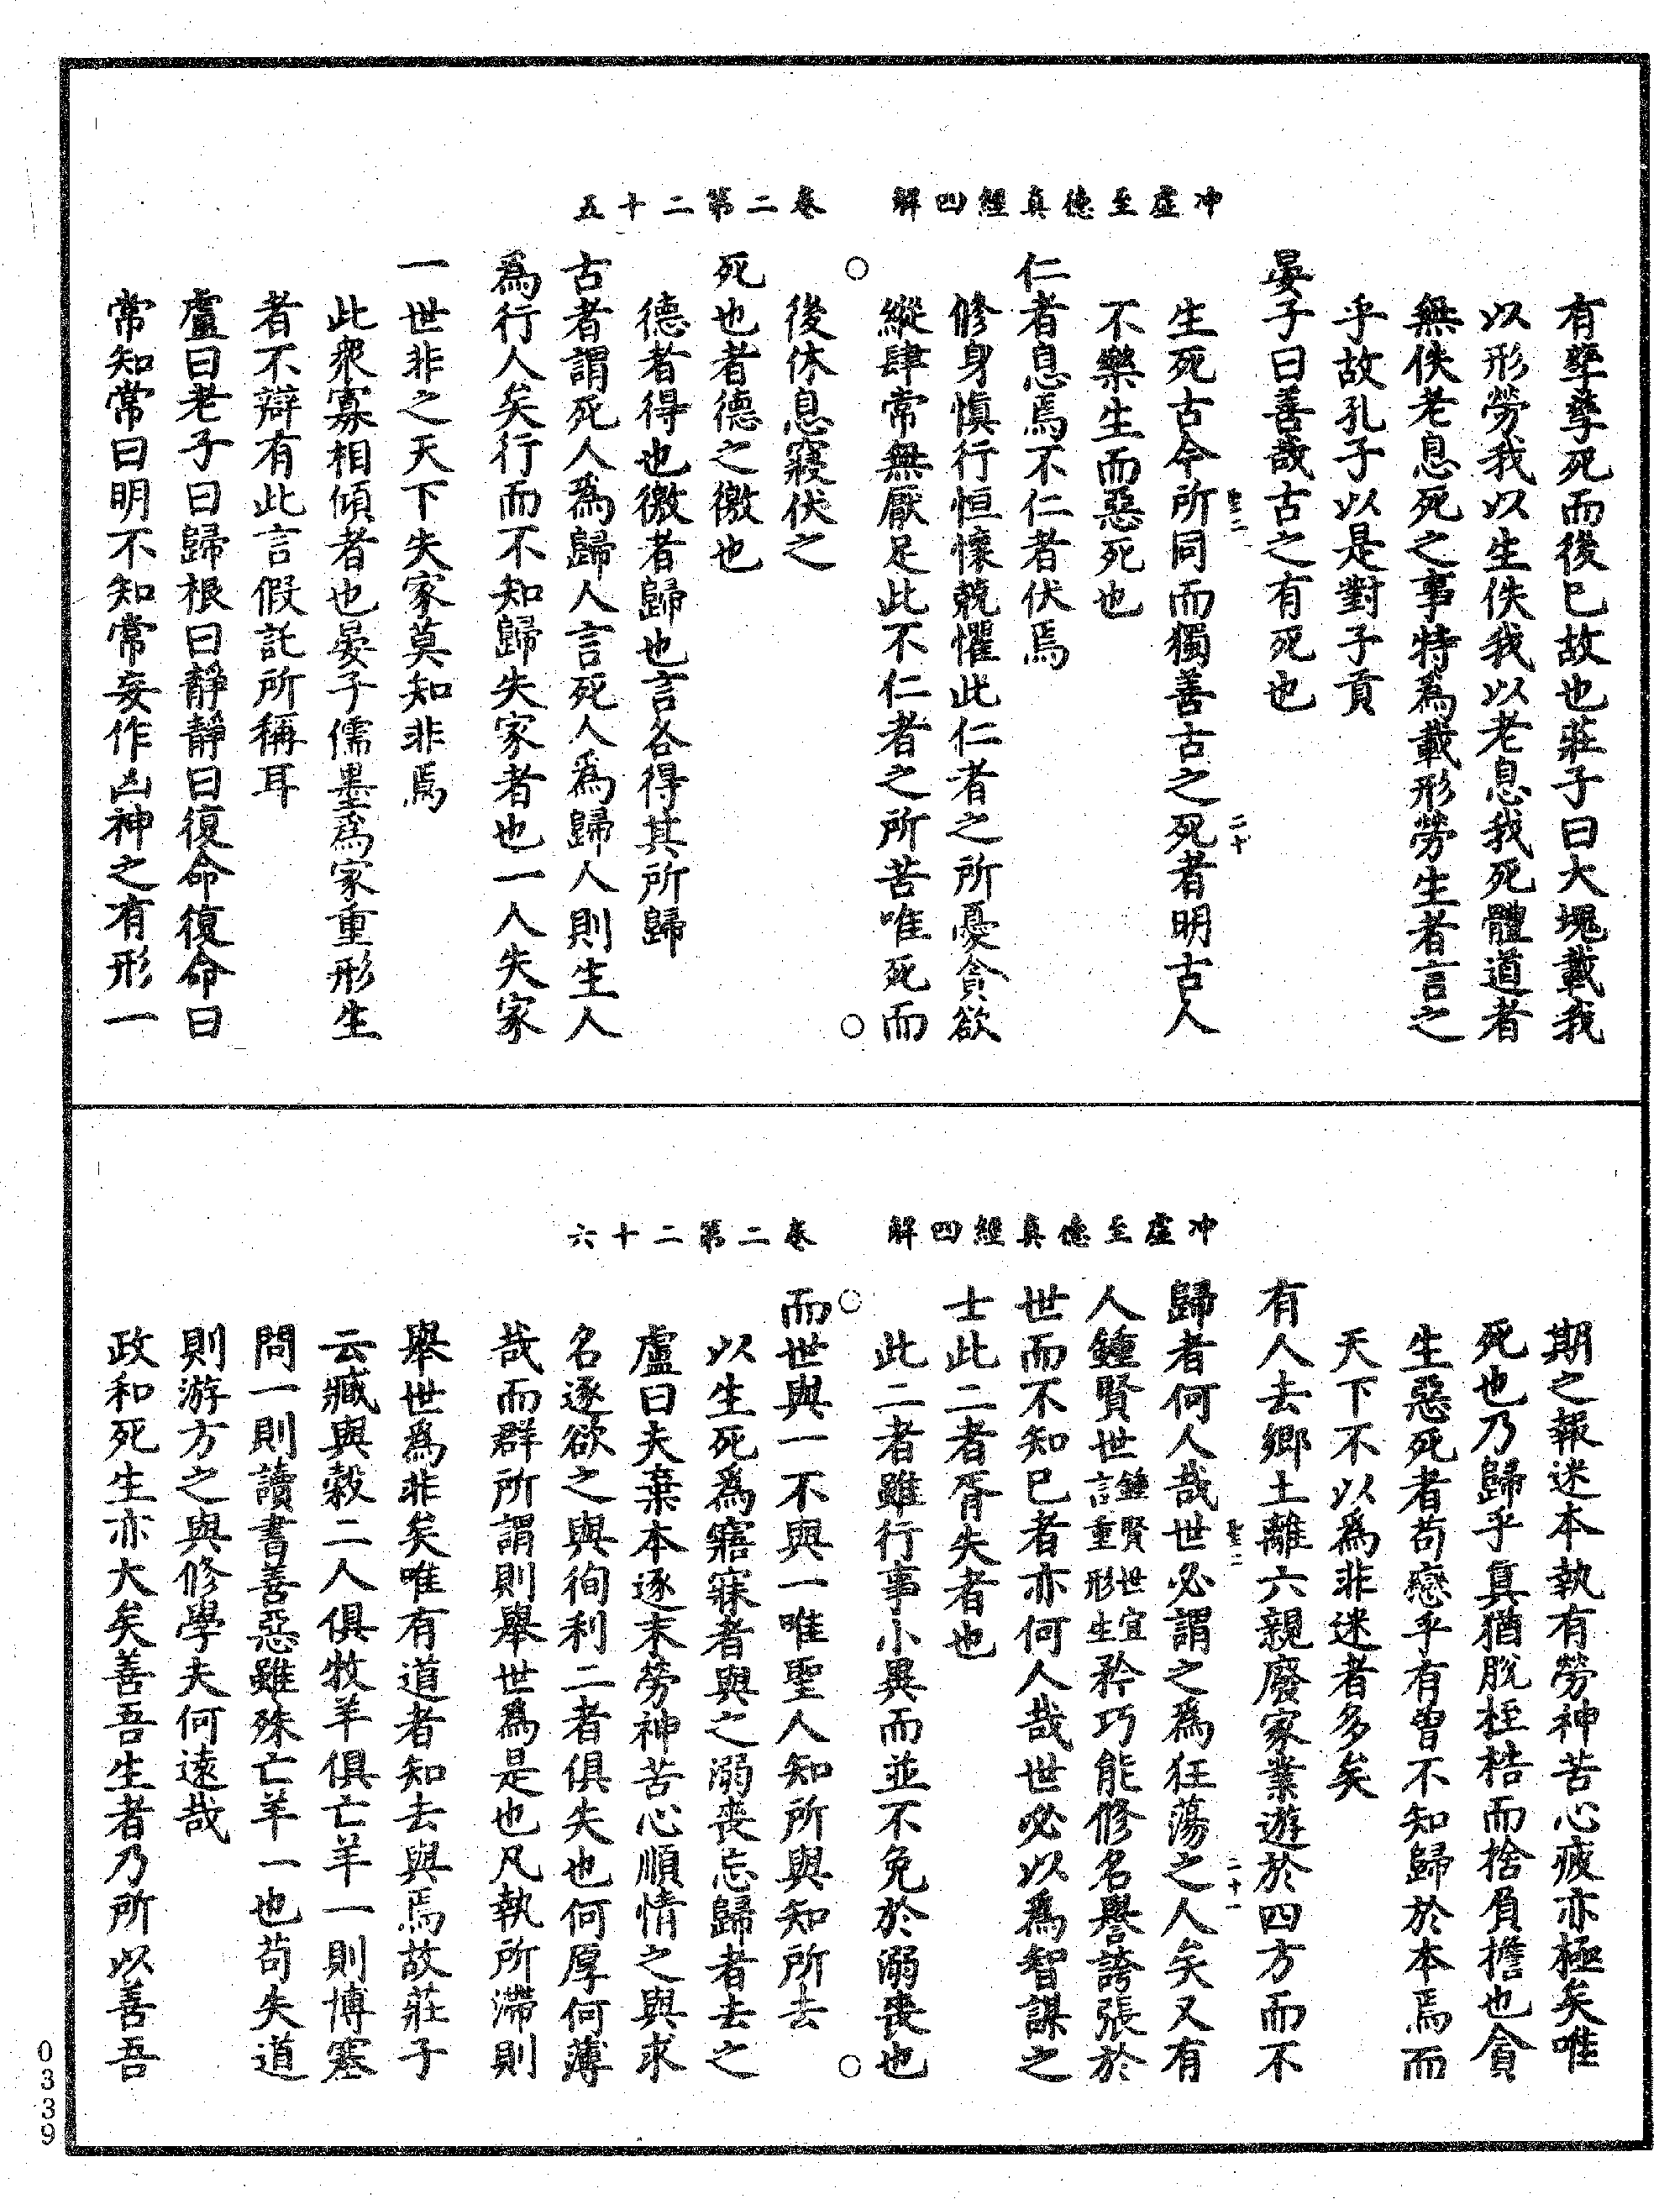 冲虛至德真經四解　卷二第二十五
有孳孳死而後已故也莊子曰大塊載我
以形勞我以生佚我以老息我死體道者
無佚老息死之事特為載形勞生者言之
乎故孔子以是對子貢
晏子曰善哉古之有死也
生死古今所同而獨善古之死者明古人
不樂生而惡死也
仁者息焉不仁者伏焉
修身慎行恒懷兢懼此仁者之所憂貪欲
縱肆常無厭足此不仁者之所苦唯死而
後休息寢伏之
死也者德之徼也
德者得也徼者歸也言各得其所歸
古者謂死人爲歸人言死人爲歸人則生人
爲行人矣行而不知歸失家者也一人失家
一世非之天下失家莫知非焉
此衆寡相傾者也晏子儒墨爲家重形生
者不辯有此言假託所稱耳
盧曰老子曰歸根曰靜靜曰復命復命曰
常知常曰明不知常妄作凶神之有形一
二十
冲虛至德真經四解　卷二第二十六
期之報迷本執有勞神苦心疲亦極矣唯
死也乃歸乎真猶脫桎梏而捨負檐也貪
生惡死者苟戀乎有曾不知歸於本焉而
天下不以爲非迷者多矣
有人去鄉土離六親廢家業遊於四方而不
歸者何人哉世必謂之爲狂蕩之人矣又有
人鍾賢世鍾賢世宜言重形生矜巧能修名譽誇張於
世而不知已者亦何人哉世必以爲智謀之
士此二者胥失者也
此二者雖行事小異而並不免於溺喪也
而世與一不與一唯聖人知所與知所去
以生死爲寤寐者與之溺喪忘歸者去之
盧曰夫棄本逐末勞神苦心順情之與求
名逐欲之與徇利二者俱失也何厚何薄
哉而群所謂則舉世爲是也凡執所滯則
舉世爲非矣唯有道者知去與焉故莊子
云臧與穀二人俱牧羊俱亡羊一則博塞
問一則讀書善惡雖殊亡羊一也苟失道
則游方之與修學夫何遠哉
政和死生亦大矣善吾生者乃所以善吾
二十一
0339